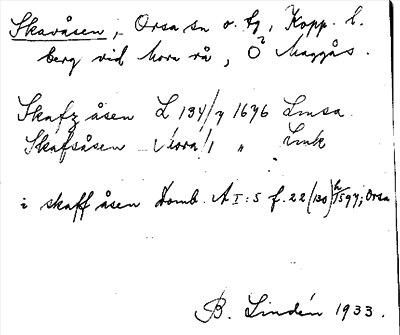 Skavåsen, Orsa sn o. tg, Kopp. l.
berg vid Mora rå, Ö² Maggås.
Skafz åsen L 134/7 1676 Lmsa
Skafsåsen Mora/1 " Lmk
i skaff åsen Domb. A I:5 f. 22 (130) 1597; Orsa
B. Lindén 1933.